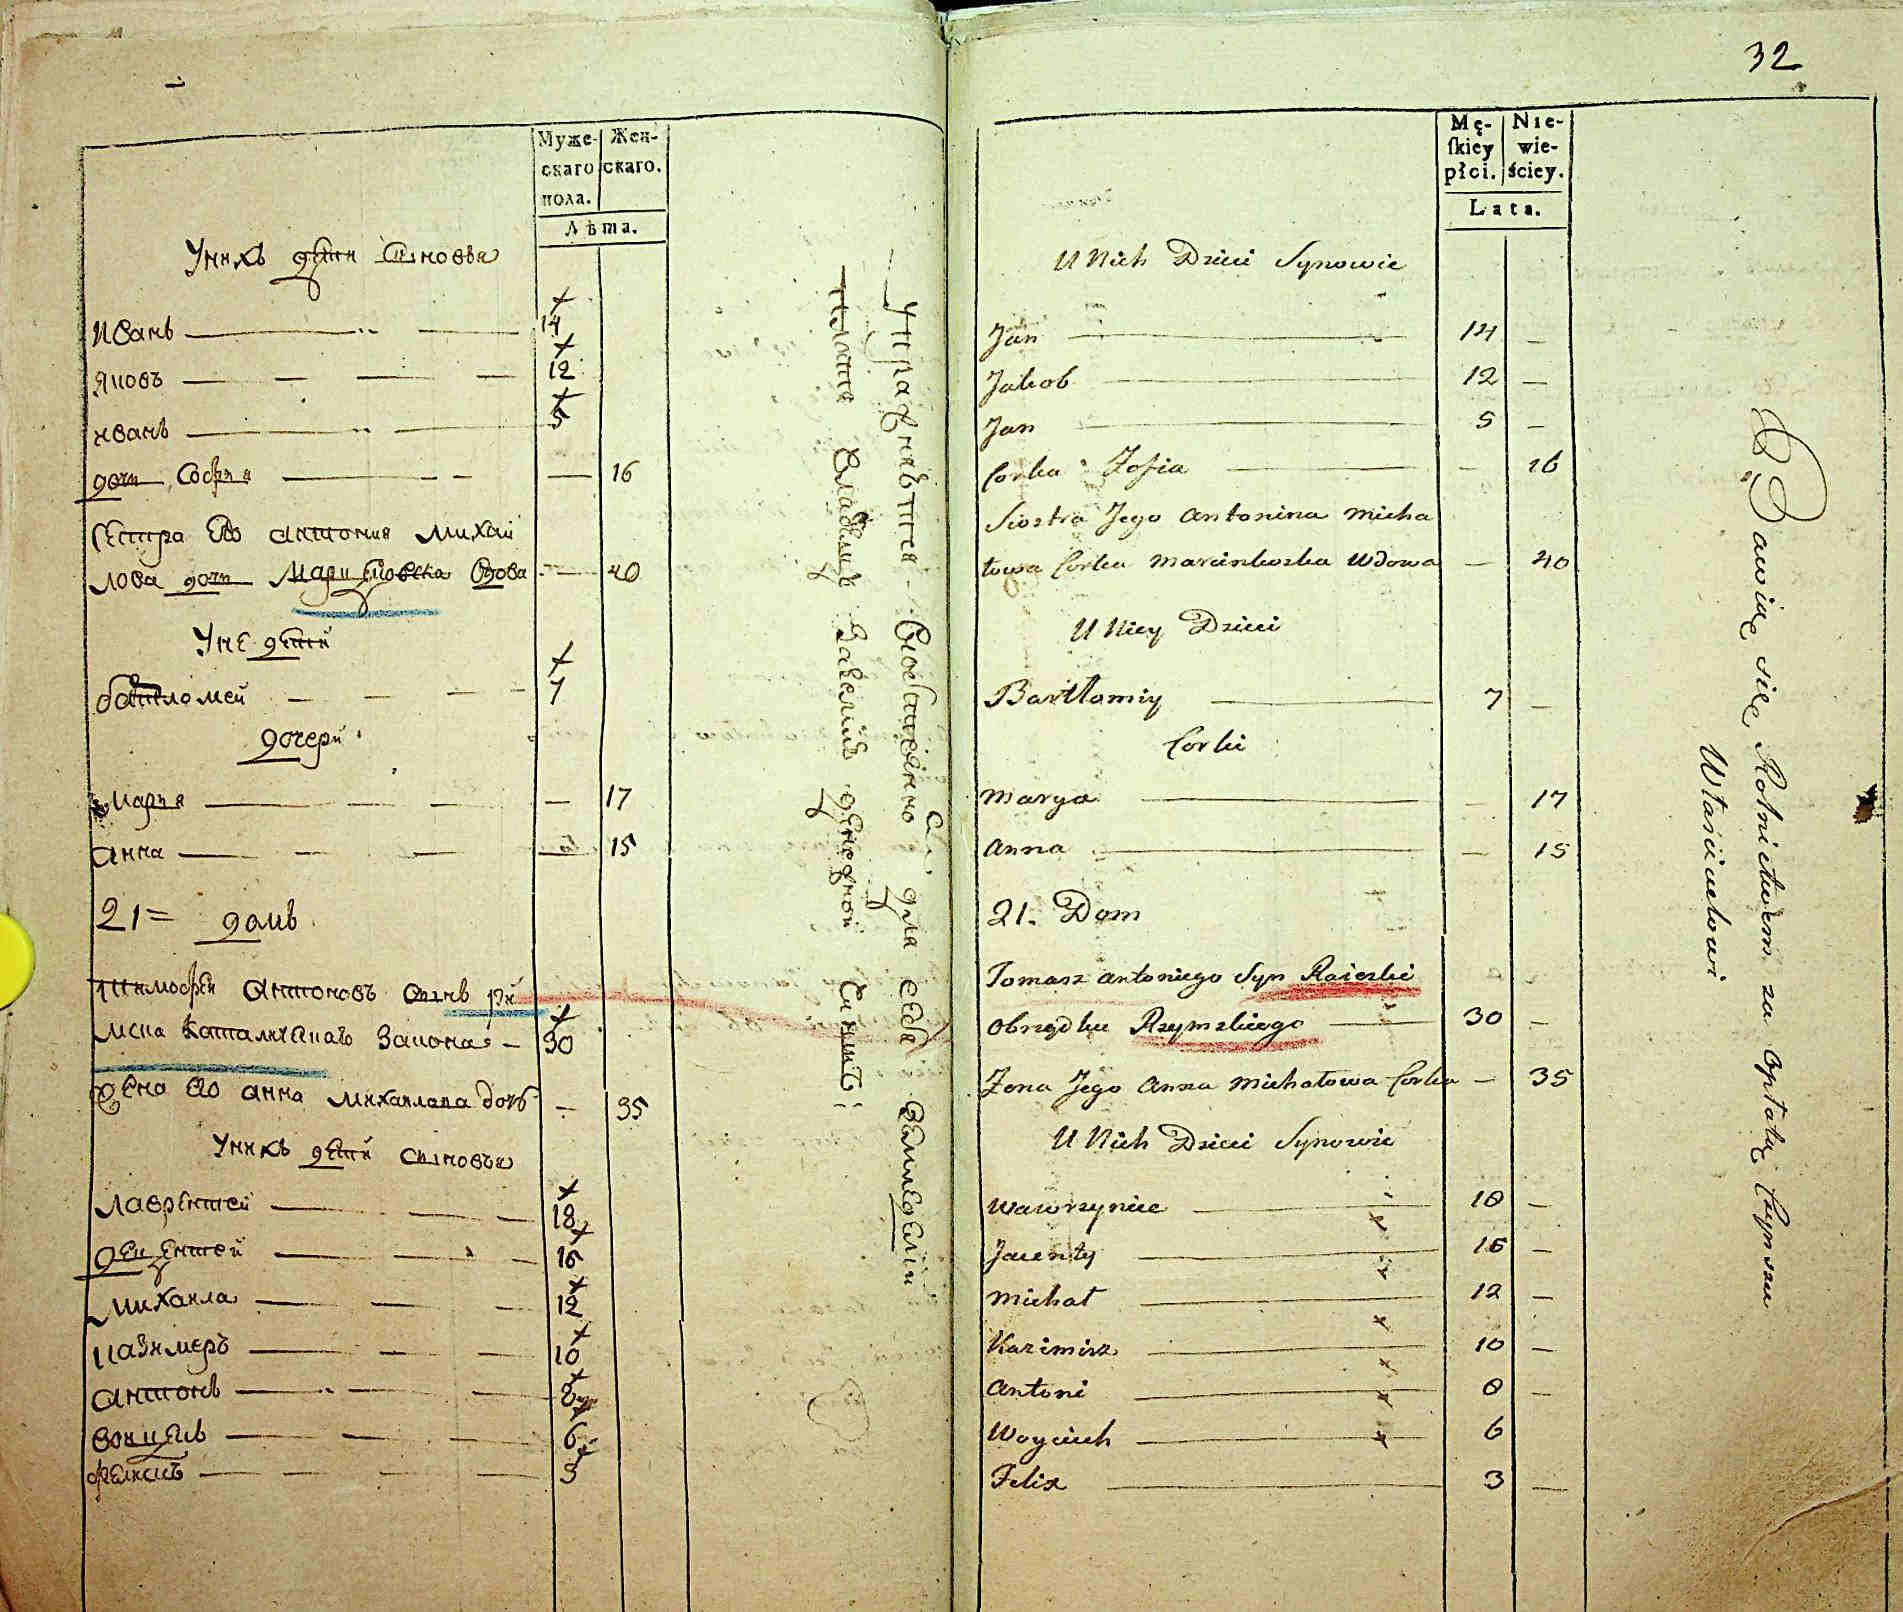 Муже-
скаго
пола.
Жен-
скаго.
Лѣта.
Унихъ дети Сыновья
Иванъ 14
Яковъ 12
Иванъ 5
дочи София — 16
Сестра Его антония михай
лова дочи Вдова — 40
Уне детей
батломей 7
дочери
Мария — 17
анна — 15
21= домъ
тимофей антоновъ сынъ ри
мска католицкаго Закона — 30
Жена Его анна михаилова дочь — 35
Унихъ детей сыновья
лаврентей 18
16
михаила 12
Казимеръ 10
антонъ 8
6
феликсъ 3
Упражняется для себя земледелии
платя
32
Mę-
skiey
płci.
Nie-
wie-
ściey.
Lata.
U Nich Dzieci Synowie
Jan 14 —
Jakob 12 —
Jan 5 —
Corka Zofia — 16
Siostra Jego Antonina Micha
łowa Corka Marcinkoska Wdowa — 40
U Niey Dzieci
Bartłomiy 7 —
Corki
Marya — 17
Anna — 15
21. Dom
Tomasz Antoniego Syn Raieski
Obrządku Rzymskiego 30 —
Zona Jego Anna Michałowa Corka — 35
U Nich Dzieci Synowie
Wawrzyniec 18 —
Jacenty 16 —
Michał 12 —
Kazimirz 10 —
Antoni 8 —
Woyciech 6
Felix 3 —
Bawią się Rolnictwem za Opłatą Czynszu
Właścicielowi